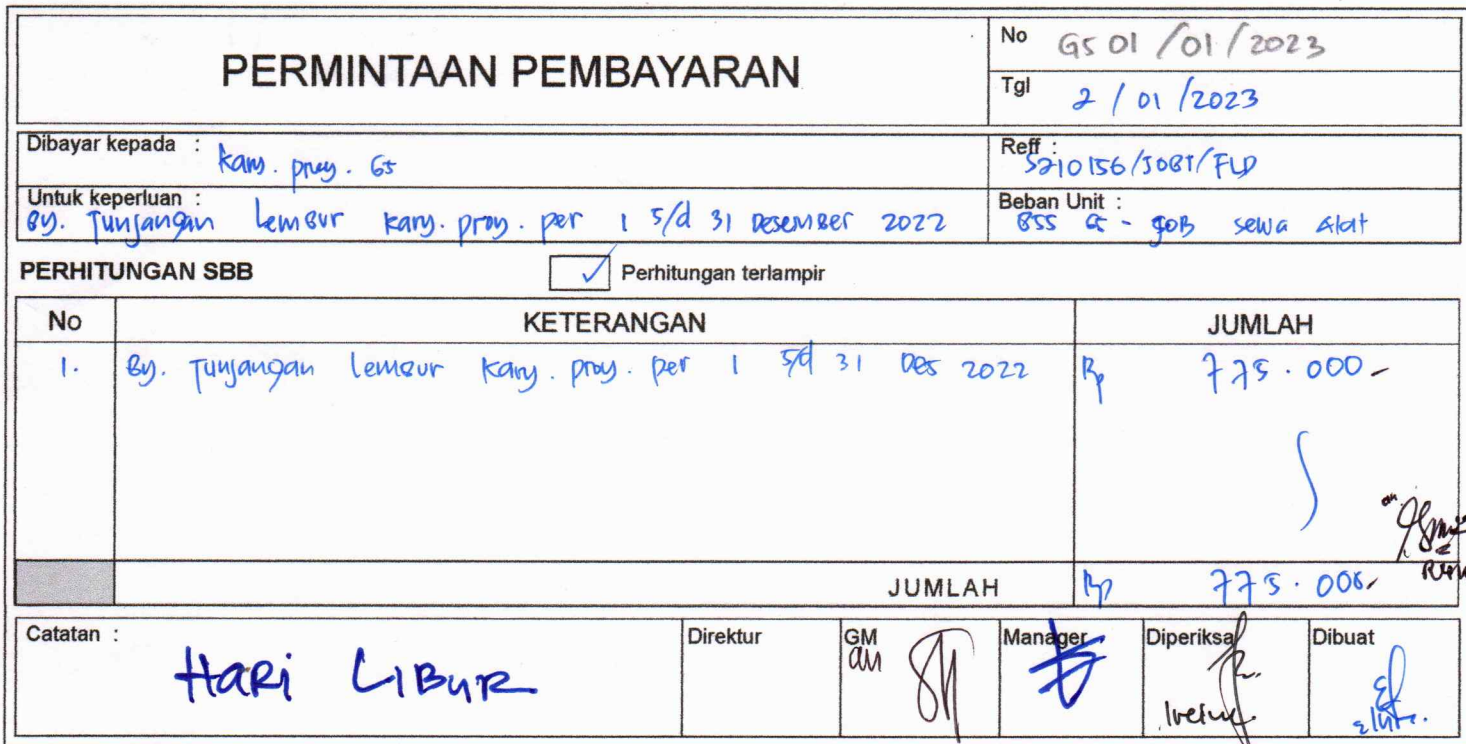 PERMINTAAN PEMBAYARAN
No GS 01 / 01 / 2023
Tgl 2 / 01 / 2023
Dibayar kepada : kary. proy. GS
Reff : S210156/JOBT/FLD
Untuk keperluan : By. Tunjangan Lembur kary. proy. per 1 s/d 31 Desember 2022
Beban Unit : BSS GS - JOB sewa Alat
PERHITUNGAN SBB
✓ Perhitungan terlampir
No KETERANGAN JUMLAH
1. By. Tunjangan lembur kary. proy. per 1 s/d 31 Des 2022 Rp 775.000,-
JUMLAH Rp 775.000,-
Catatan : HARI LIBUR
Direktur GM an Manager Diperiksa Dibuat